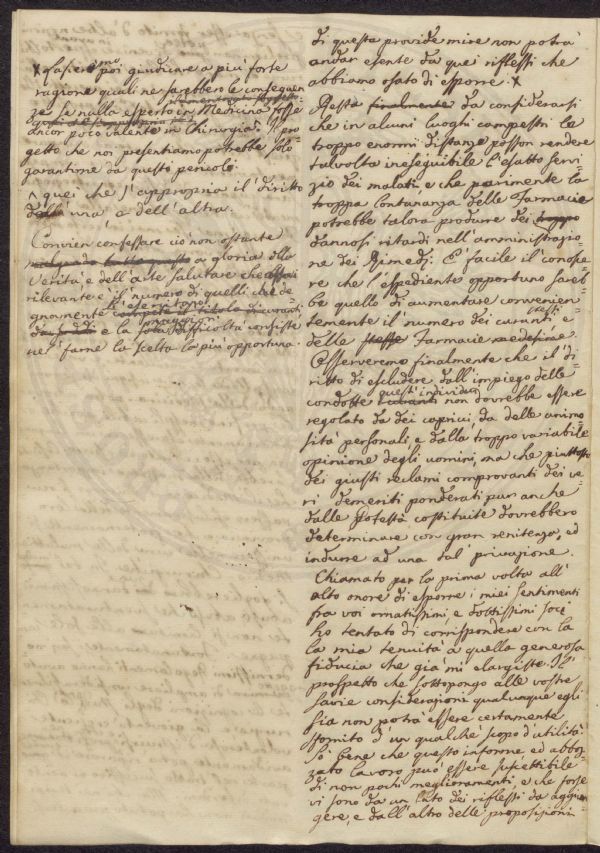 X Lasceremo poi giudicare a più forte
ragione quali ne sarebbero le conseguen
ze se nulla esperto in Medicina fosse
ancor poco valente in Chirurgia. Il pro
getto che noi presentiamo potrebbe solo
garantirne da questo pericolo.
^ quei che s'appropria il diritto
dell' una, o dell'altra.
Convien confessare ciò non ostante
a gloria della
verità e dell'arte salutare che assai
rilevante è il numero di quelli che de=
gnamente l'esercitano
e la maggiore difficoltà consiste
nel farne la scelta la più opportuna.
di queste provide mire non potrà
andar esente da que' riflessi che
abbiamo osato di esporre. X
Resta finalmente da considerarsi
che in alcuni luoghi campestri le
troppo enormi distanze posson rendere
talvolta ineseguibile l'esatto servi
zio dei malati, e che parimente la
troppa lontananza delle Farmacie
potrebbe talora produrre dei troppo
dannosi ritardi nell'amministrazio=
ne dei Rimedj. È facile il conosce
re che l'espediente opportuno sareb
be quello di aumentare convenien
temente il numero dei curanti stessi e
delle stesse Farmacie medesime.
Osserveremo finalmente che il di
ritto di escludere dall'impiego delle
condotte questi individui curanti non dovrebbe essere
regolato da dei capricci, da delle animo
sità personali, e dalla troppo variabile
opinione degli uomini, ma che piuttosto
dei giusti reclami comprovanti dei ve=
ri demeriti ponderati pur anche
dalle Potestà costituite dovrebbero
determinare con gran renitenza, ed
indurre ad una tal privazione.
Chiamato per la prima volta all'
alto onore di esporre i miei sentimenti
fra voi ornatissimi, e dottissimi socj
ho tentato di corrispondere con la
la mia tenuità a quella generosa
fiducia che già mi elargiste. Il
prospetto che sottopongo alle vostre
savie considerazioni qualunque egli
sia non potrà essere certamente
sfornito d'un qualche scopo d'utilità.
Sò bene che questo informe ed abboz
zato lavoro può essere suscettibile
di non pochi miglioramenti, e che forse
vi sono da un lato dei riflessi da aggiun
gere, e dall'altro delle proposizioni